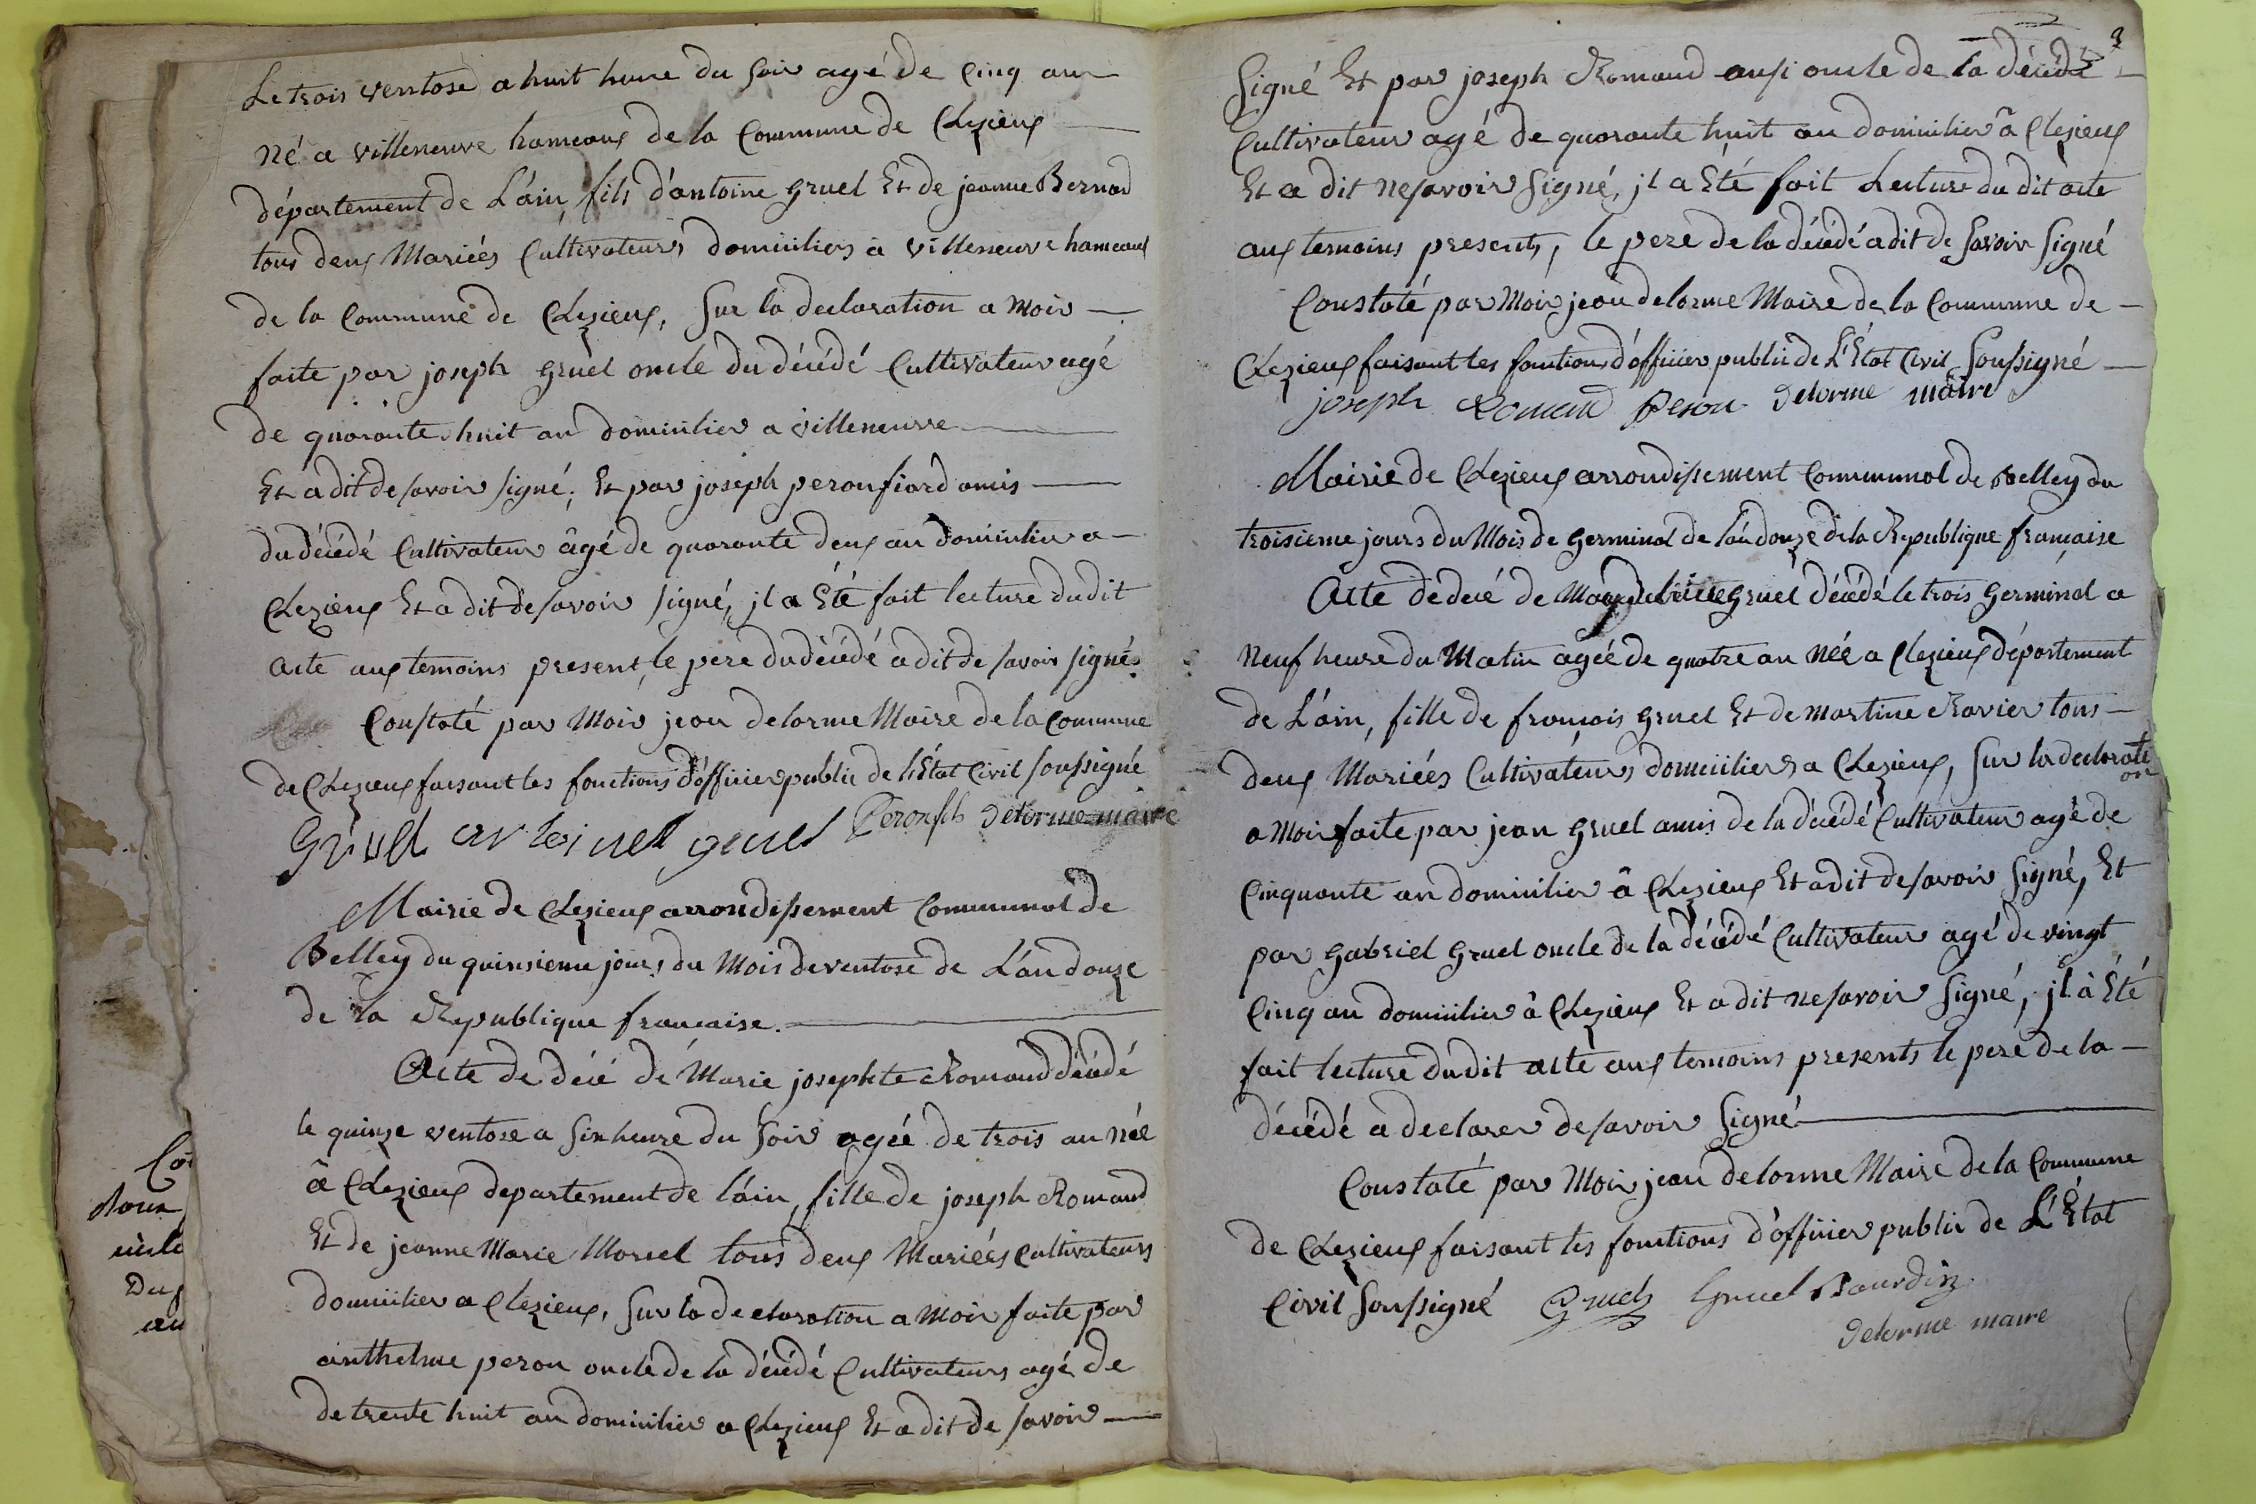 Le trois ventose a huit heure du soir agé de cinq ans
né a villeneuve hameaux de la Commune de Chezieux
département de L'ain, fils d'antoine gruel Et de jeanne Bernard
tous deux Mariés Cultivateurs domiciliers à villeneuve hameaux
de la Commune de Chezieux, Sur la declaration a moir
faite par joseph gruel oncle du décédé Cultivateur agé
de quarante huit an domicilier a villeneuve
Et a dit de savoir signé, Et par joseph peron fiard amis
du décédé Cultivateur âgé de quarante deux an domicilier a
Chezieux Et a dit de savoir signé, jl a Été fait lecture du dit
acte aux temoins present, le pere du décédé a dit de savoir signé.
Constaté par Moir jean delorme Maire de la Commune
de Chezieux faisant les fonctions d'officier public de L'État Civil soussigné
Gruel gruel delorme maire
Mairie de Chezieux arrondissement Communal de
Belley du quinsieme jours du Mois de ventose de L'an douze
de la Republique francaise.
Acte de décé de Marie josephte Romand décédé
le quinze ventose a six heure du soir agée de trois an née
â Chezieux departement de l'ain, fille de joseph Romand
Et de jeanne Marie Morel tous deux Mariées Cultivateurs
domicilier a Chezieux, Sur la declaration a Moir faite par
anthelme peron oncle de la décédé Cultivateurs agé de
de trente huit an domicilier a Chezieux Et a dit de savoir
3
Signé Et par joseph Romand ausi oncle de la décédé
Cultivateur agé de quarante huit an domicilier â Chezieux
Et a dit ne savoir Signé, jl a Été fait Lecture du dit acte
aux temoins presents, le pere de la décédé a dit de savoir signé
Constaté par Moir jean delorme Maire de la Commune de
Chezieux faisant les fonctions d'officier public de L'État Civil Soussigné
joseph Romand Peron delorme maire
Mairie de Chezieux arrondissement Communal de Belley du
troisieme jours du Mois de germinal de l'an douze de la Republique francaise
Acte de décé de gruel décédé le trois germinal a
Neuf heure du Matin agée de quatre an née a Chezieux département
de L'ain, fille de francois gruel Et de martine Ravier tous
deux Mariées Cultivateurs domiciliers a Chezieux, Sur la declarati
on
a Moir faite par jean gruel amis de la décédé Cultivateur agé de
Cinquante an domicilier â Chezieux Et a dit de savoir signé, Et
par gabriel gruel oncle de la décédé Cultivateur agé de vingt
Cinq an domicilier â Chezieux Et a dit ne savoir signé, jl à Été
fait lecture du dit acte aux temoins presents le pere de la
décédé a declarer de savoir signé
Constaté par Moir jean delorme Maire de la Commune
de Chezieux faisant les fonctions d'officier public de L'État
Civil soussigné Gruel Gruel Bourdin
delorme maire